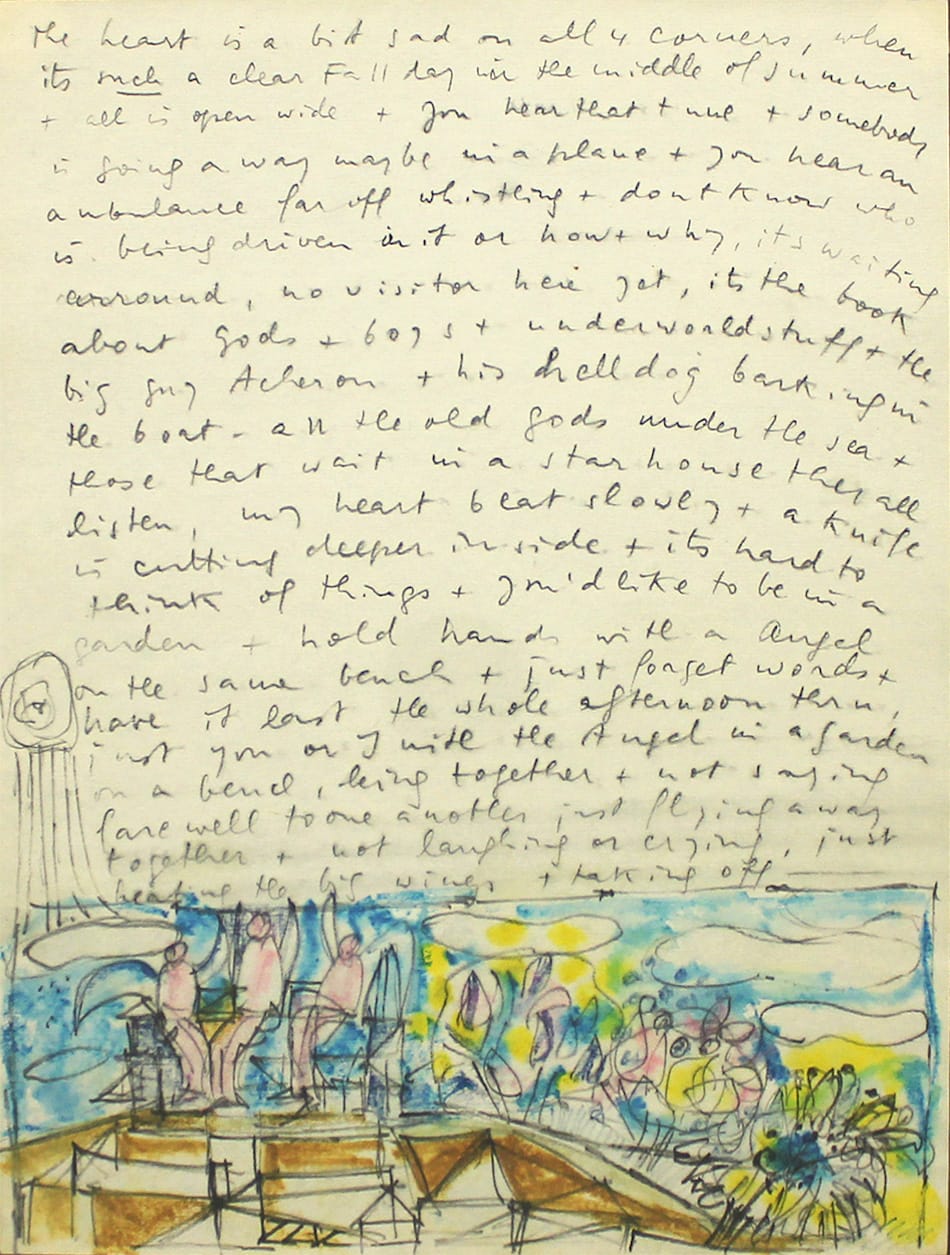 the heart is a bit sad on all 4 corners, when
its such a clear Fall day in the middle of summer
+ all is open wide + you hear that tune + somebody
is going away maybe in a plane + you hear an
ambulance far off whistling + dont know who
is being driven in it or how + why, its waiting
arround, no visitor here yet, its the book
about gods + boys + underworldstuff + the
big guy Acheron + his helldog barking in
the boat - all the old gods under the sea +
those that wait in a starhouse they all
listen, my heart beat slowly + a knife
is cutting deeper inside + its hard to
think of things + you'd like to be in a
garden + hold hands with a Angel
on the same bench + just forget words +
have it last the whole afternoon thru,
just you or I with the Angel in a garden
on a bench, being together + not saying
farewell to one another just flying away
together + not laughing or crying, just
hearing the big wings + taking off